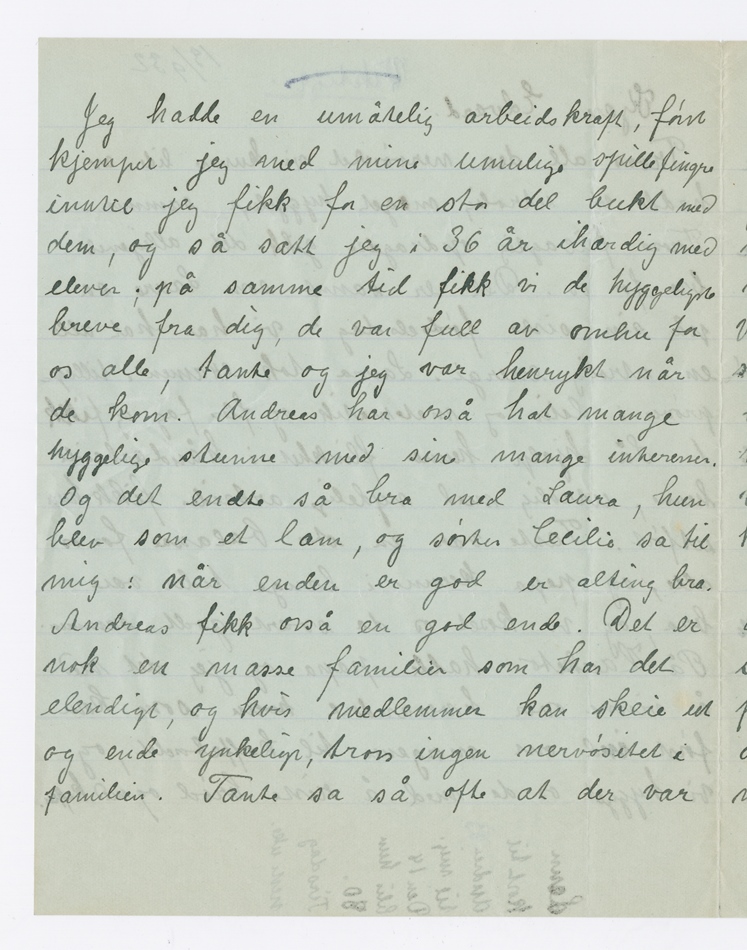 Jeg hadde en umåtelig arbeidskraft, først
kjempet jeg med mine umulige spillefingre
inntil jeg fikk for en stor del bukt med
dem, og så satt jeg i 36 år iherdig med
elever; på samme tid fikk vi de hyggeligste
breve fra dig, de var full av omhu for
os alle, tante og jeg var henrykt når
de kom. Andreas har også hat mange
hyggelige stunne med sine mange interesser.
Og det endte så bra med Laura, hun
blev som et lam, og søster Cecilie sa til
mig: når enden er god er alting bra.
Andreas fikk også en god ende. Det er
nok en masse familier som har det
elendigt, og hvis medlemmer kan skeie ut
og ende ynkeligt, tross ingen nervøsitet i
familien. Tante sa så ofte at der var